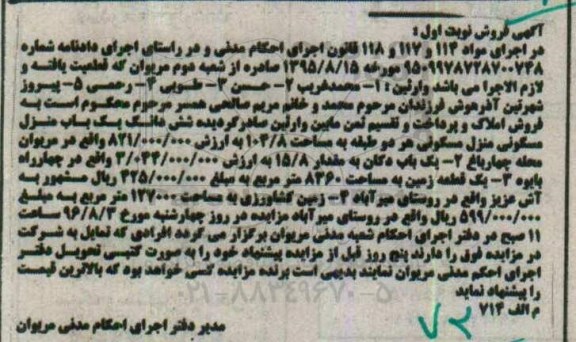 آگهی فروش نوبت اول:
در اجرای مواد ۱۱۴ و ۱۱۷ و ۱۱۸ قانون اجرای احکام مدنی و در راستای اجرای دادنامه شماره
۹۵۰۹۹۷۸۷۲۸۷۰۰۷۴۸ مورخه ۱۳۹۵/۸/۱۵ صادره از شعبه دوم مریوان که قطعیت یافته و
لازم الاجرا می باشد وارثین: ۱- محمدغریب ۲- حسن ۳- طوبی ۴- رحمی ۵- پیروز
شهرتین آذرهوش فرزندان مرحوم محمد و خانم مریم صالحی همسر مرحوم محکوم است به
فروش املاک و پرداخت و تقسیم ثمن مابین وارثین صادرگردیده شش دانگ یک باب منزل
مسکونی منزل مسکونی هر دو طبقه به مساحت ۱۰۴/۸ به ارزش ۸۲۱/۰۰۰/۰۰۰ واقع در مریوان
محله چهارباغ ۲- یک باب دکان به مقدار ۱۵/۸ به ارزش ۳/۰۴۴/۰۰۰/۰۰۰ واقع در چهارراه
بایوه ۳- یک قطعه زمین به مساحت ۸۳۶۰ متر مربع به مبلغ ۴۲۵/۰۰۰/۰۰۰ ریال مشهور به
آش عزیز واقع در روستای میرآباد ۴- زمین کشاورزی به مساحت ۱۲۷۰۰ متر مربع به مبلغ
۵۹۹/۰۰۰/۰۰۰ ریال واقع در روستای میرآباد مزایده در روز چهارشنبه مورخ ۹۶/۸/۳ ساعت
۱۱ صبح در دفتر اجرای احکام شعبه مدنی مریوان برگزار می گردد افرادی که تمایل به شرکت
در مزایده فوق را دارند پنج روز قبل از مزایده پیشنهاد خود را به صورت کتبی تحویل دفتر
اجرای احکم مدنی مریوان نمایند بدیهی است برنده مزایده کسی خواهد بود که بالاترین قیمت
را پیشنهاد نماید
م الف ۷۱۴
مدیر دفتر اجرای احکام مدنی مریوان
۷۲
۰۲۱-۸۸۳۴۹۶۷۰-۵